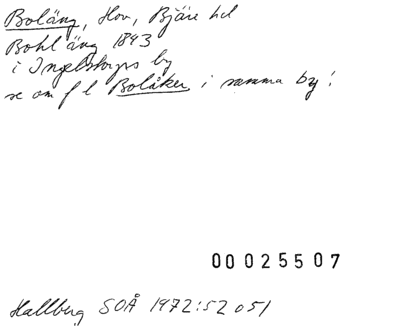 Boläng, Hov, Bjäre hd
Bohl äng 1843
i Ingelstorps by
se om f l Bolåker i samma by!
00025507
Hallberg SOÅ 1972:52 051